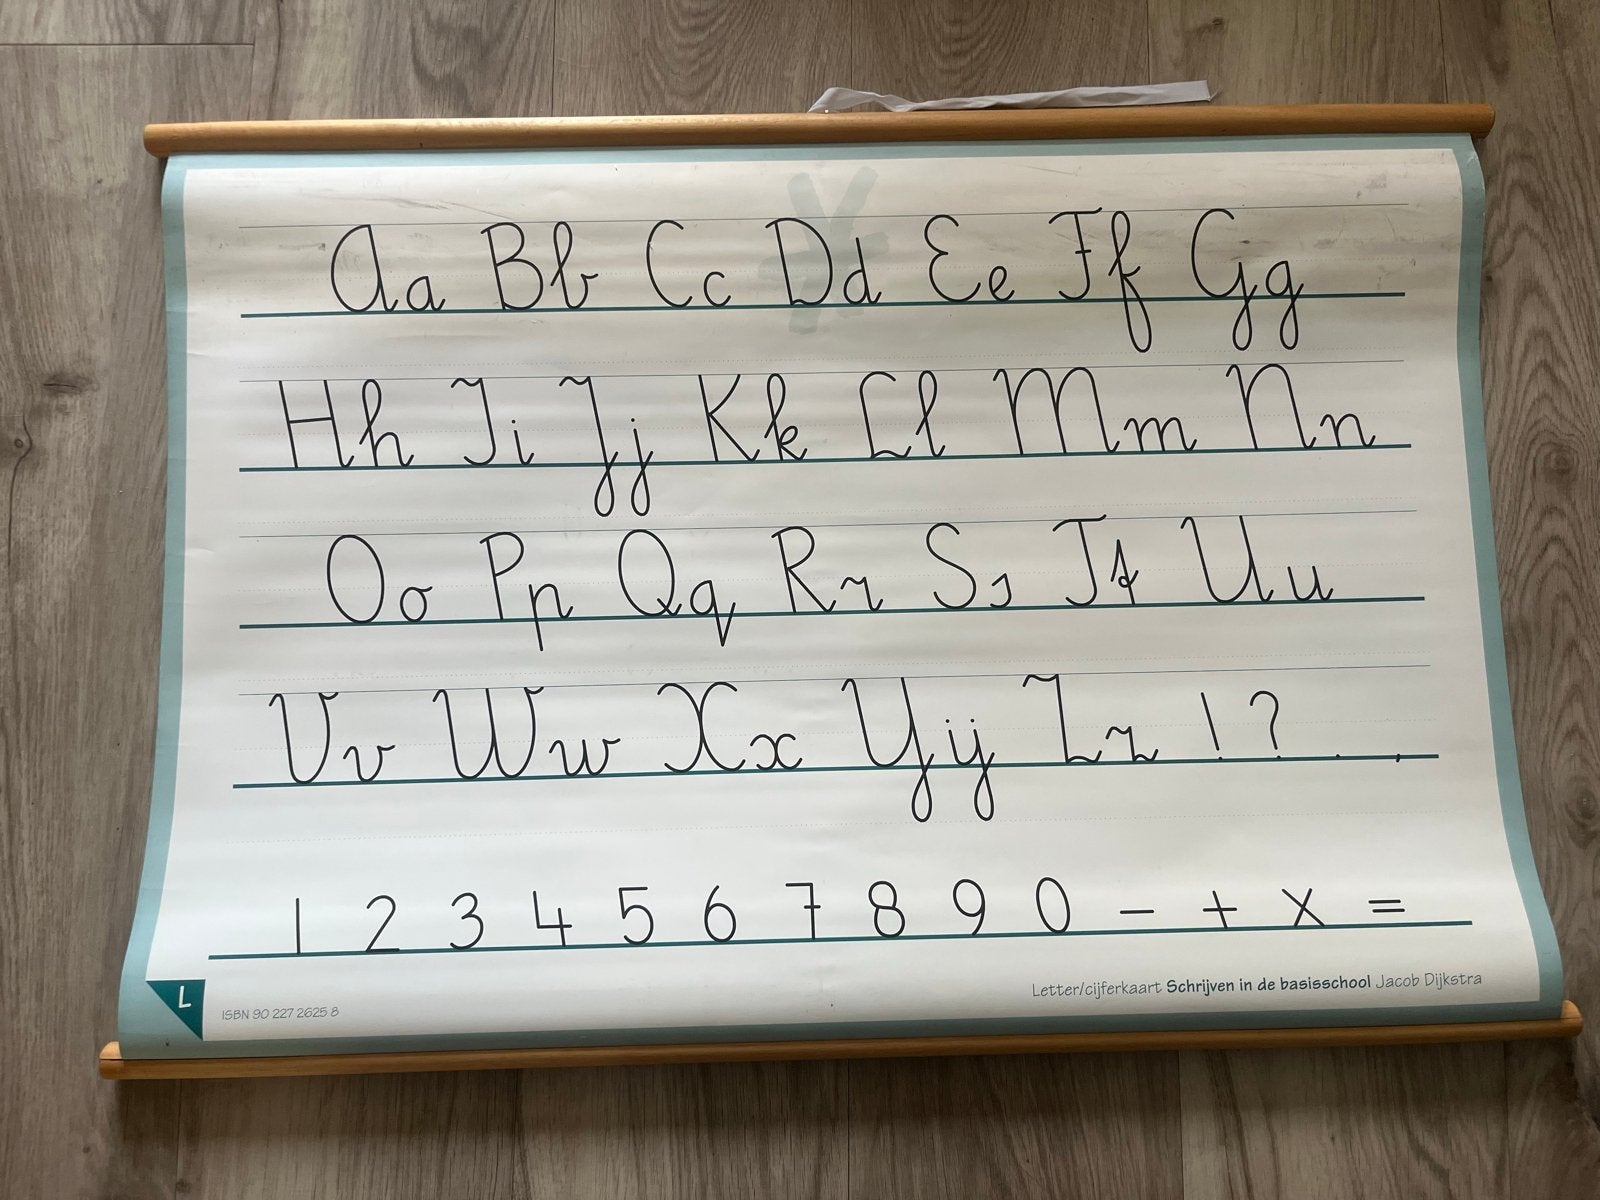 Aa Bb Cc Dd Ee Ff Gg
Hh Ii Jj Kk Ll Mm Nn
Oo Pp Qq Rr Ss Tt Uu
Vv Ww Xx Yij Zz ! ? . ,
1 2 3 4 5 6 7 8 9 0 - + x =
L
ISBN 90 227 2625 8
Letter/cijferkaart Schrijven in de basisschool Jacob Dijkstra